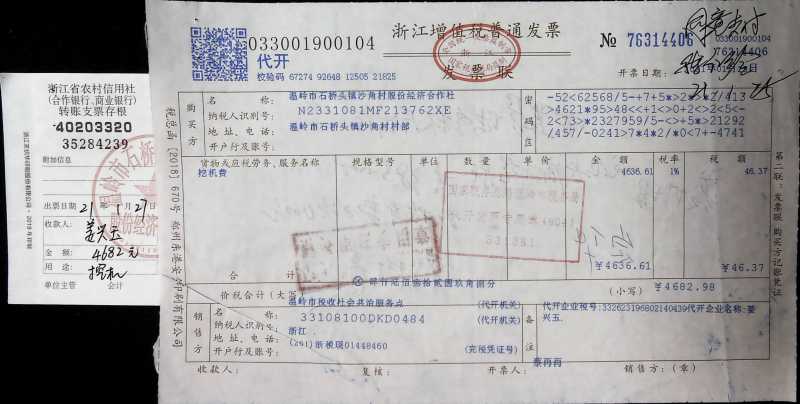 浙江省农村信用社
(合作银行、商业银行)
转账支票存根
40203320
35284239
附加信息
出票日期 21年1月27日
收款人:
姜兴玉
金额: 4682元
用途: 挖机
单位主管 会计
033001900104
浙江增值税普通发票
№ 76314406
033001900104
76314406
代开
校验码 67274 92648 12505 21825
发票联
开票日期:
同意支付
21.1.25
税总函〔2018〕670号
购买方
名称: 温岭市石桥头镇沙角村股份经济合作社
纳税人识别号: N2331081MF213762XE
地址、电话: 温岭市石桥头镇沙角村村部
开户行及账号:
密码区
>4621*95>48<<+1>0+2>2<5<-
2<73>*2327959/5-<>+5*>21292
/457/-0241>7*4*2/*0<7+-4741
货物或应税劳务、服务名称 规格型号 单位 数量 单价 金额 税率 税额
挖机费 4636.61 1% 46.37
合计 ¥4636.61 ¥46.37
价税合计(大写) 肆仟陆佰捌拾贰圆玖角捌分 (小写) ¥4682.98
销售方
名称: 温岭市税收社会共治服务点 (代开机关)
纳税人识别号: 33108100DKD0484 (代开机关)
地址、电话: 浙江
开户行及账号: (201)浙税现01448460 (完税凭证号)
备注
代开企业税号:332623196802140439代开企业名称:姜
兴玉
收款人: 复核: 开票人: 蔡冉冉 销售方:(章)
第二联:发票联 购买方记账凭证